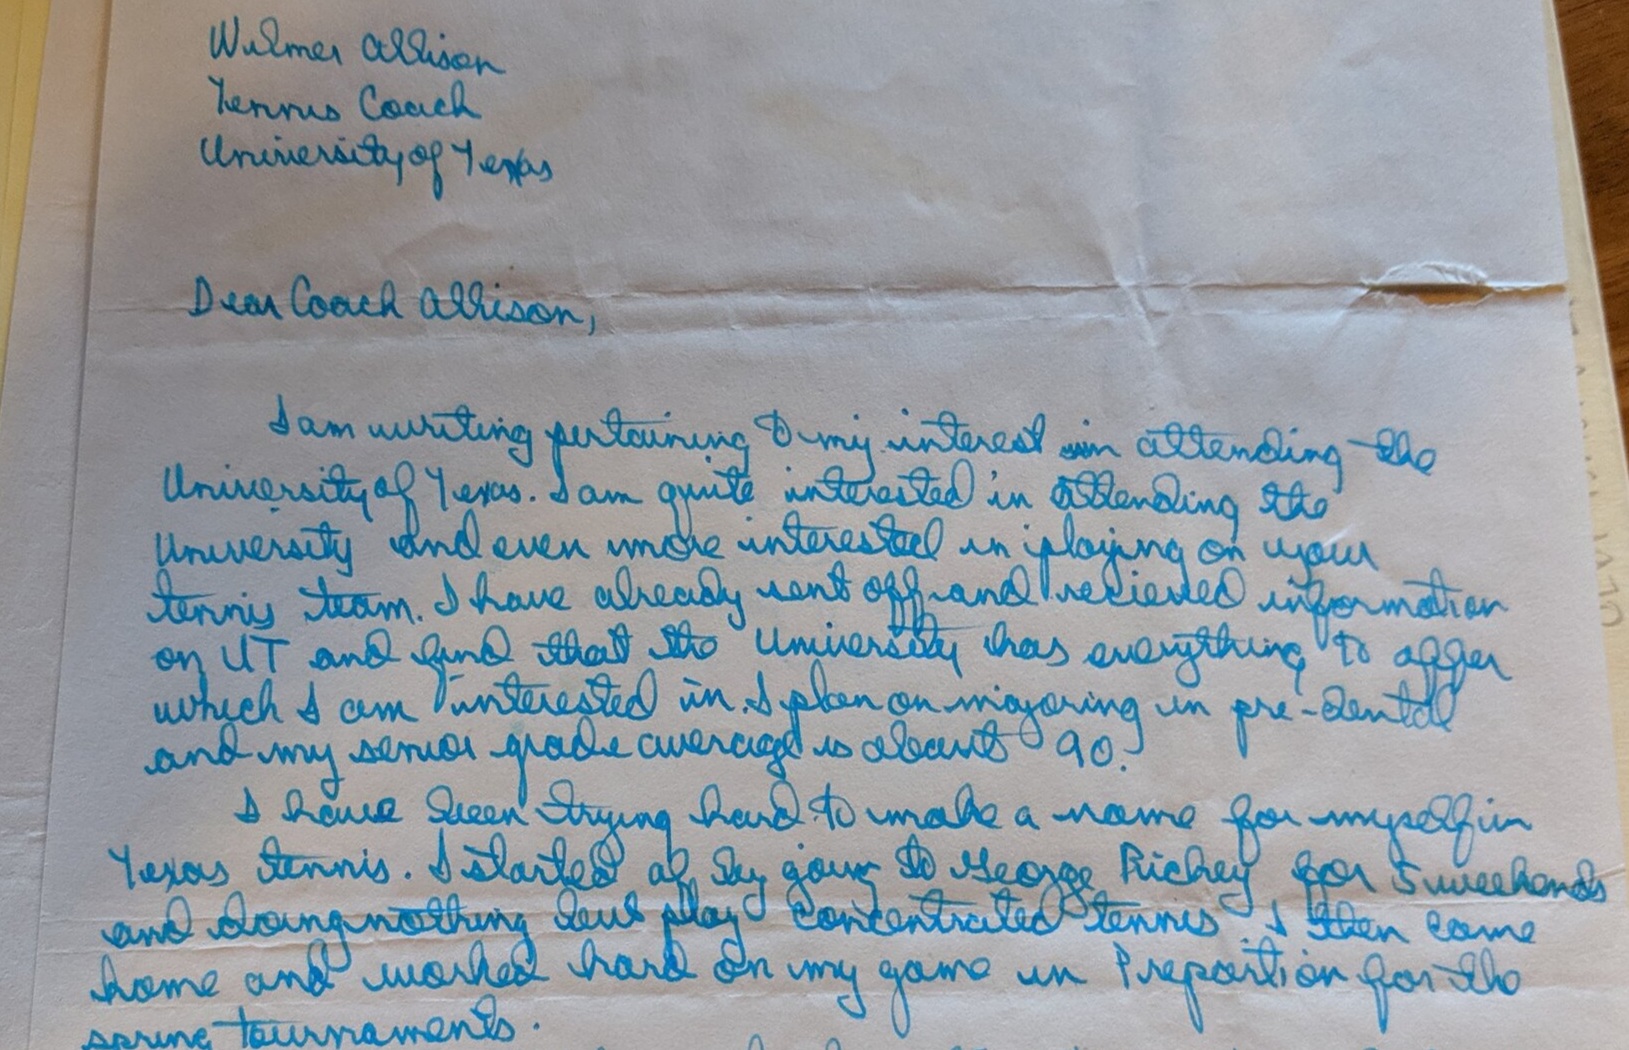 Wilmer Allison
Tennis Coach
University of Texas
Dear Coach Allison,
I am writing pertaining to my interest in attending the
University of Texas. I am quite interested in attending the
University and even more interested in playing on your
tennis team. I have already sent off and recieved information
on UT and find that the University has everything to offer
which I am interested in. I plan on majoring in pre-dental
and my senior grade average is about 90.
I have been trying hard to make a name for myself in
Texas tennis. I started of by going to George Richey for 5 weekends
and doing nothing but play concentrated tennis. I then came
home and worked hard on my game in Preportion for the
spring tournaments.